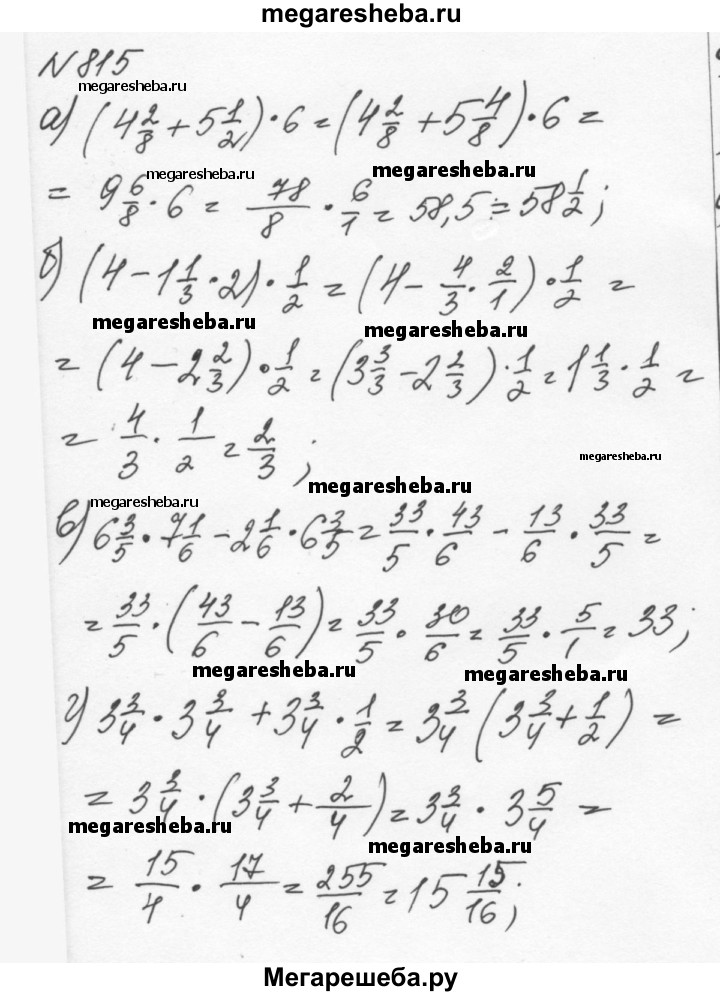 megaresheba.ru
N 815
megaresheba.ru
а) (4 2/8 + 5 1/2) · 6 = (4 2/8 + 5 4/8) · 6 =
megaresheba.ru megaresheba.ru
= 9 6/8 · 6 = 78/8 · 6/1 = 58,5 = 58 1/2;
б) (4 - 1 1/3 · 2) · 1/2 = (4 - 4/3 · 2/1) · 1/2 =
megaresheba.ru megaresheba.ru
= (4 - 2 2/3) · 1/2 = (3 3/3 - 2 2/3) · 1/2 = 1 1/3 · 1/2 =
= 4/3 · 1/2 = 2/3;
megaresheba.ru
megaresheba.ru
megaresheba.ru
в) 6 3/5 · 7 1/6 - 2 1/6 · 6 3/5 = 33/5 · 43/6 - 13/6 · 33/5 =
= 33/5 · (43/6 - 13/6) = 33/5 · 30/6 = 33/5 · 5/1 = 33;
megaresheba.ru megaresheba.ru
г) 3 3/4 · 3 3/4 + 3 3/4 · 1/2 = 3 3/4 (3 3/4 + 1/2) =
= 3 3/4 · (3 3/4 + 2/4) = 3 3/4 · 3 5/4 =
megaresheba.ru megaresheba.ru
= 15/4 · 17/4 = 255/16 = 15 15/16;
Мегарешеба.ру